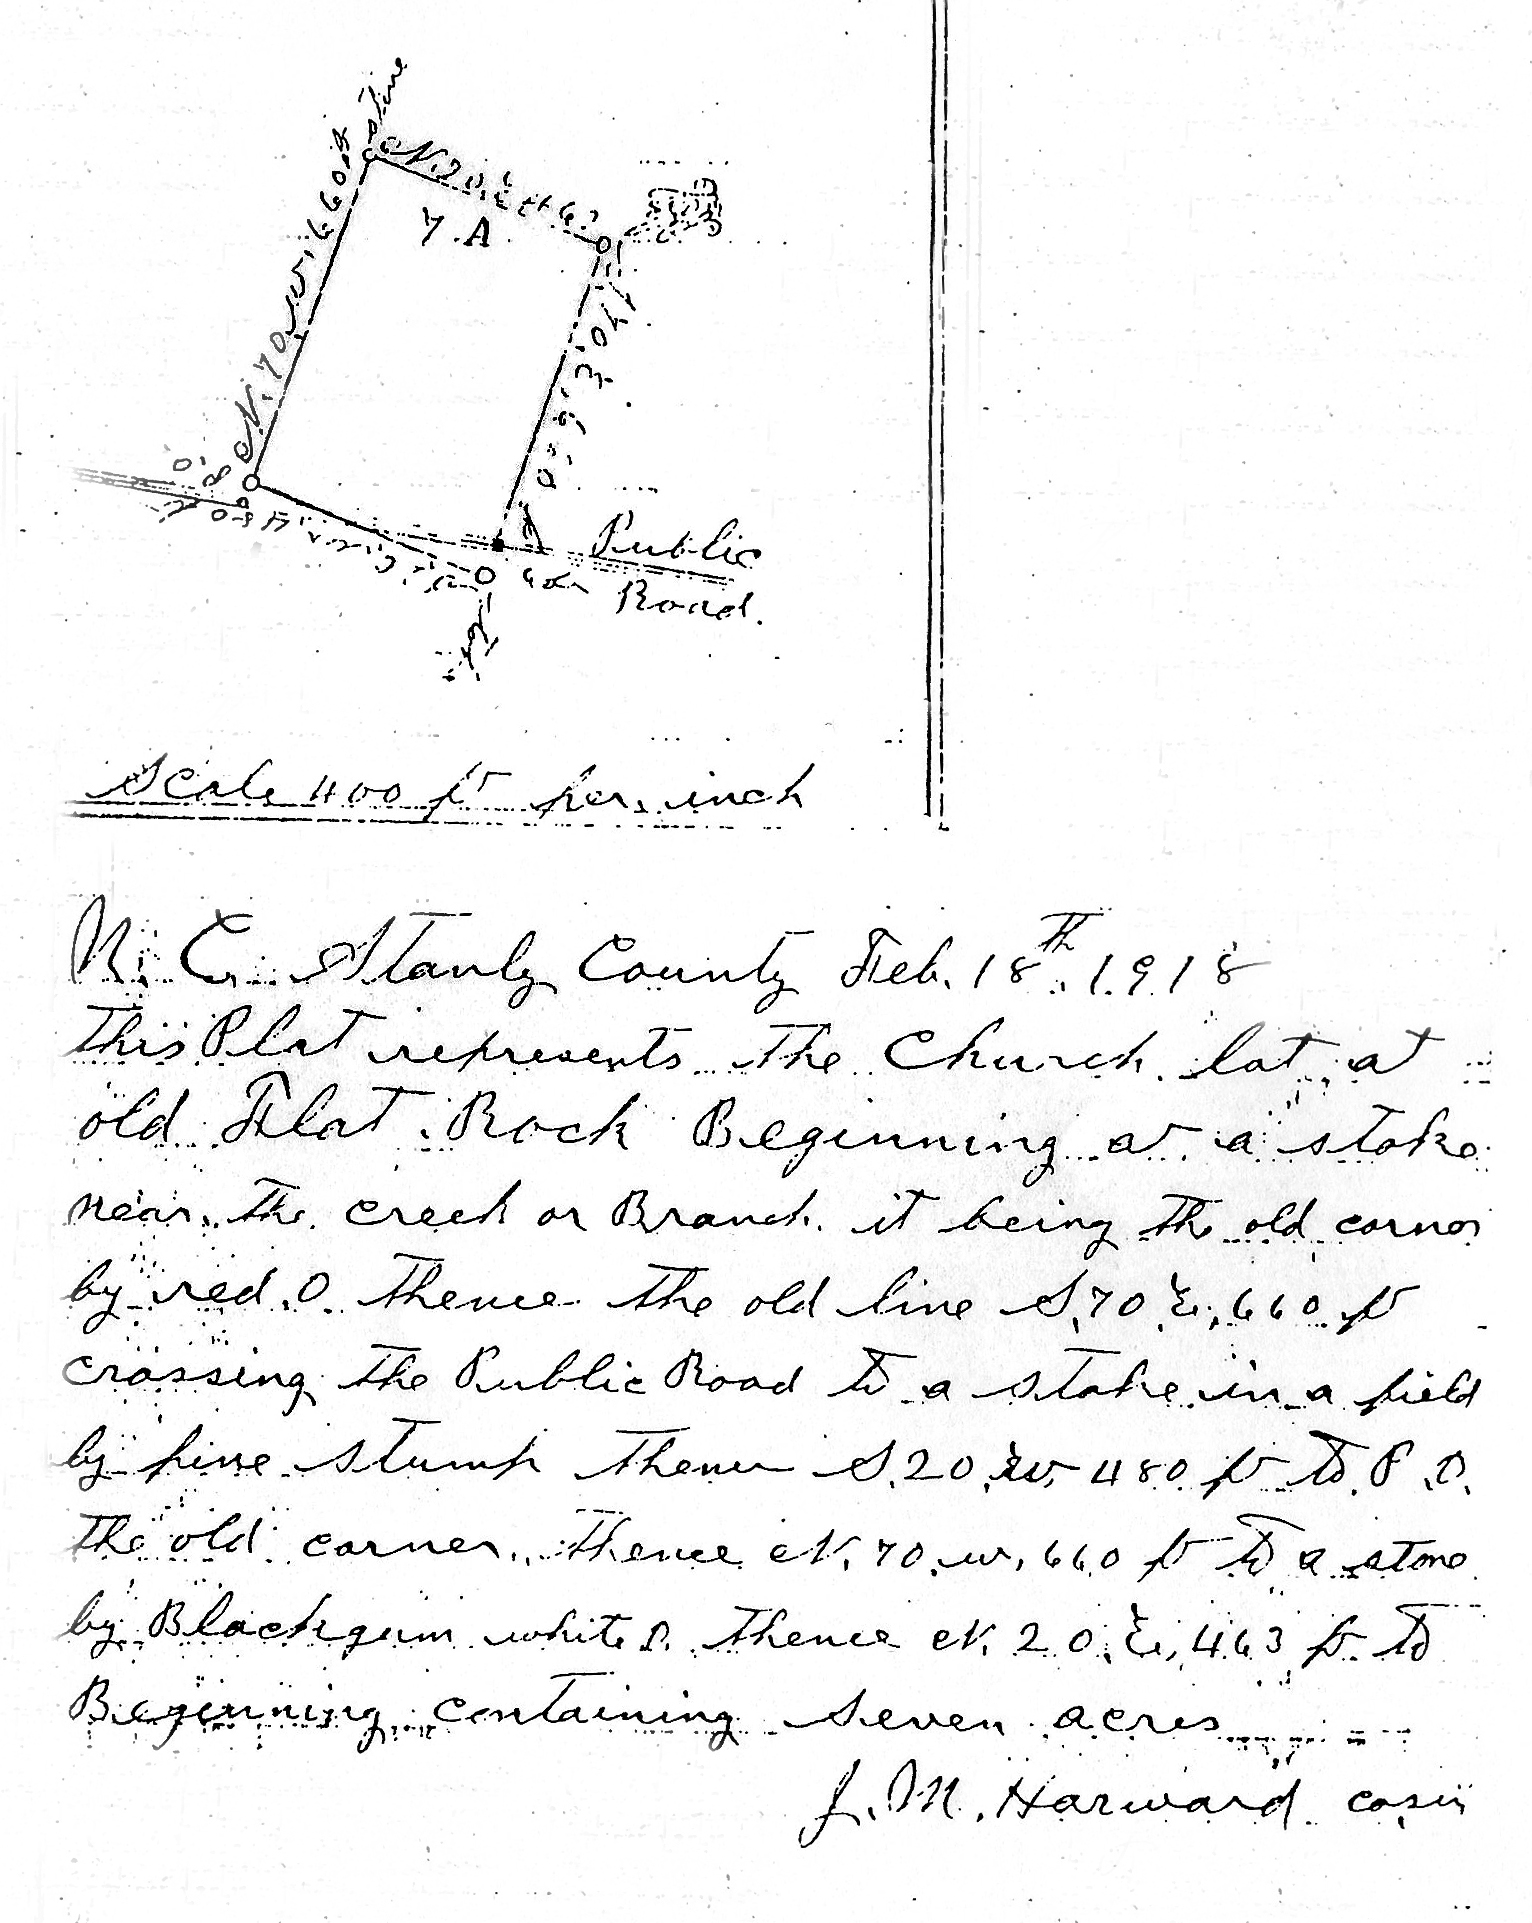 stone
N. 70 W. 660 ft
N. 20. E 463
7. A.
S 70. E. 660
Public
Road.
Scale 400 ft per. inch
N. C. Stanly County Feb. 18th 1918
this Plat represents the Church lot at
old Flat Rock Beginning at a stake
near the creek or Branch. it being the old corner
by red. O. thence the old line S. 70 E. 660 ft
crossing the Public Road to a stake in a field
by pine stump thence S. 20 W. 480 ft to P. O.
the old corner. thence N. 70. W. 660 ft to a stone
by Blackgum white O. thence N. 20. E. 463 ft to
Beginning containing seven acres
J. M. Harward